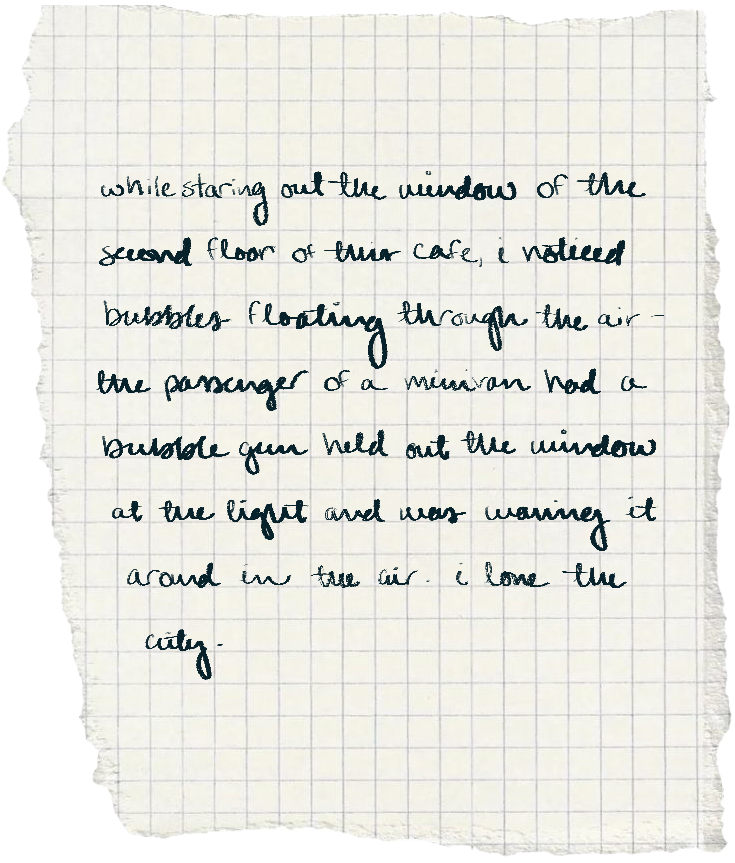 while staring out the window of the
second floor of this cafe, i noticed
bubbles floating through the air -
the passenger of a minivan had a
bubble gun held out the window
at the light and was waving it
around in the air. i love the
city.